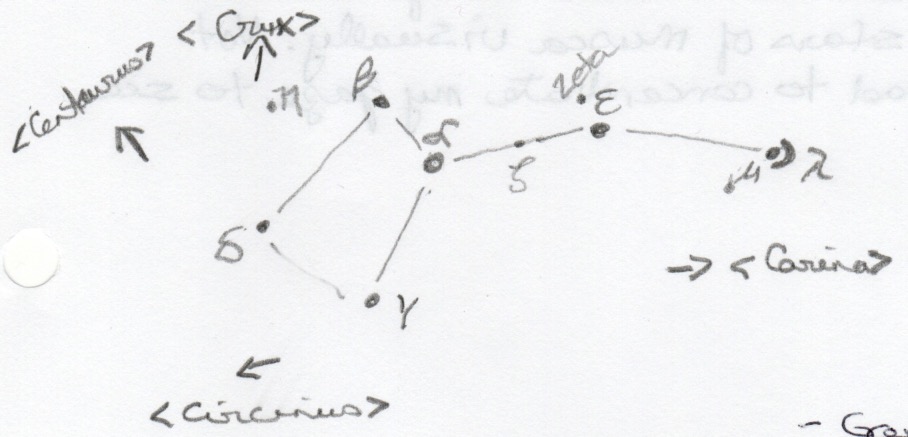 <Crux>
<Centaurus>
η
β
zeta
ε
α
ζ
μ λ
δ
<Carina>
γ
<Circinus>